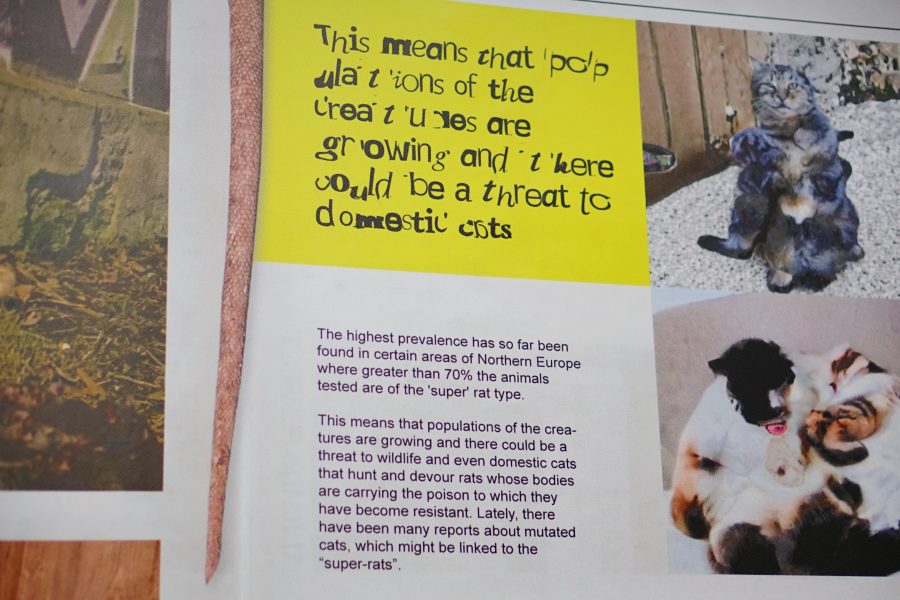 This means that 'pop
ulat'ions of the
creat'ures are
growing and 't'here
could be a threat to
domestic cats
The highest prevalence has so far been
found in certain areas of Northern Europe
where greater than 70% the animals
tested are of the 'super' rat type.
This means that populations of the crea-
tures are growing and there could be a
threat to wildlife and even domestic cats
that hunt and devour rats whose bodies
are carrying the poison to which they
have become resistant. Lately, there
have been many reports about mutated
cats, which might be linked to the
“super-rats”.